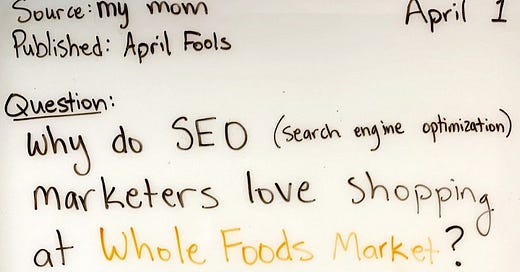 Source: my mom April 1
Published: April Fools
Question:
Why do SEO (search engine optimization)
marketers love shopping
at Whole Foods Market?